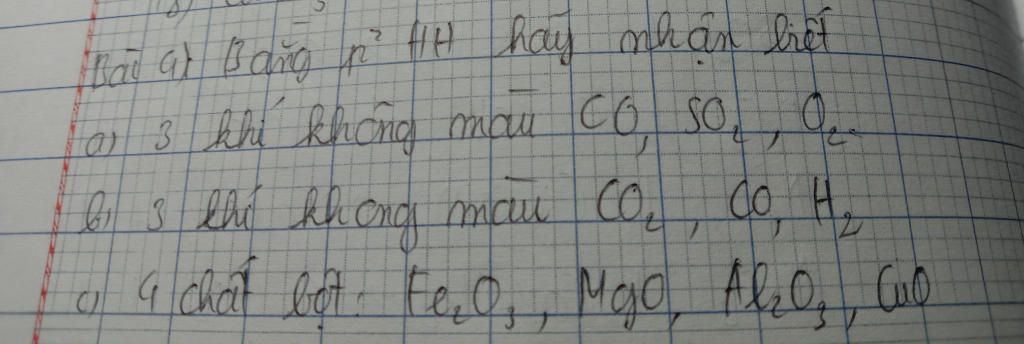 Bài 4) Bằng p² HH hãy nhận biết
a) 3 khí không màu CO, SO₂, O₂.
b) 3 khí không màu CO₂, CO, H₂
c) 4 chất bột: Fe₂O₃, MgO, Al₂O₃, CuO